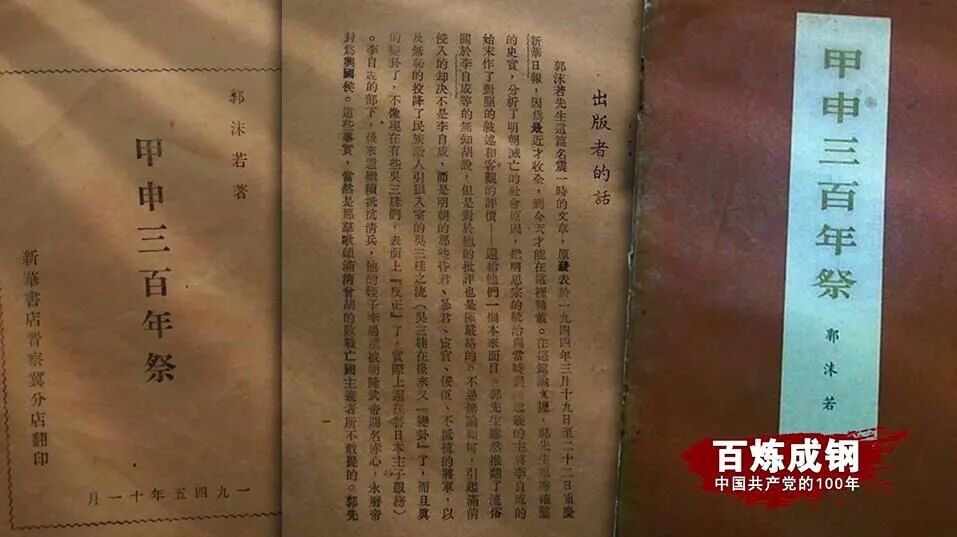 郭沫若著
甲申三百年祭
新華書店晉察冀分店翻印
一九四五年十一月
出版者的話
郭沫若先生這篇名震一時的文章，原發表於一九四四年三月十九日至二十二日重慶
新華日報，因爲最近才收全，到今天才能在這裡轉載。在這篇論文裡，郭先生根據確鑿
的史實，分析了明朝滅亡的社會原因，把明思宗的統治與當時起義的主將李自成的
始末作了對照的敍述和客觀的評價——還給他們一個本來面目。郭先生雖然推翻了流俗
關於李自成等的無知胡說，但是對於他的批評也是極嚴格的。不過無論如何，引起滿清
侵入的却決不是李自成，而是明朝的那些昏君、暴君、宦官、佞臣、不抵抗的將軍，以
及無恥的投降了民族敵人引狼入室的吳三桂之流（吳三桂在後來又『變卦』了，而且眞
的變卦了，不像現在有些吳三桂們，表面上『反正』了，實際上還在替日本主子服務）
。李自成的部下，後來還繼續抵抗清兵，他的姪子李過還被明隆武帝賜名赤心，永曆帝
封爲興國侯。這些事實，當然是那羣歌頌滿清曾胡的敗戰亡國主義者所不敢提的。郭先
甲申三百年祭
郭沫若
百炼成钢
中国共产党的100年